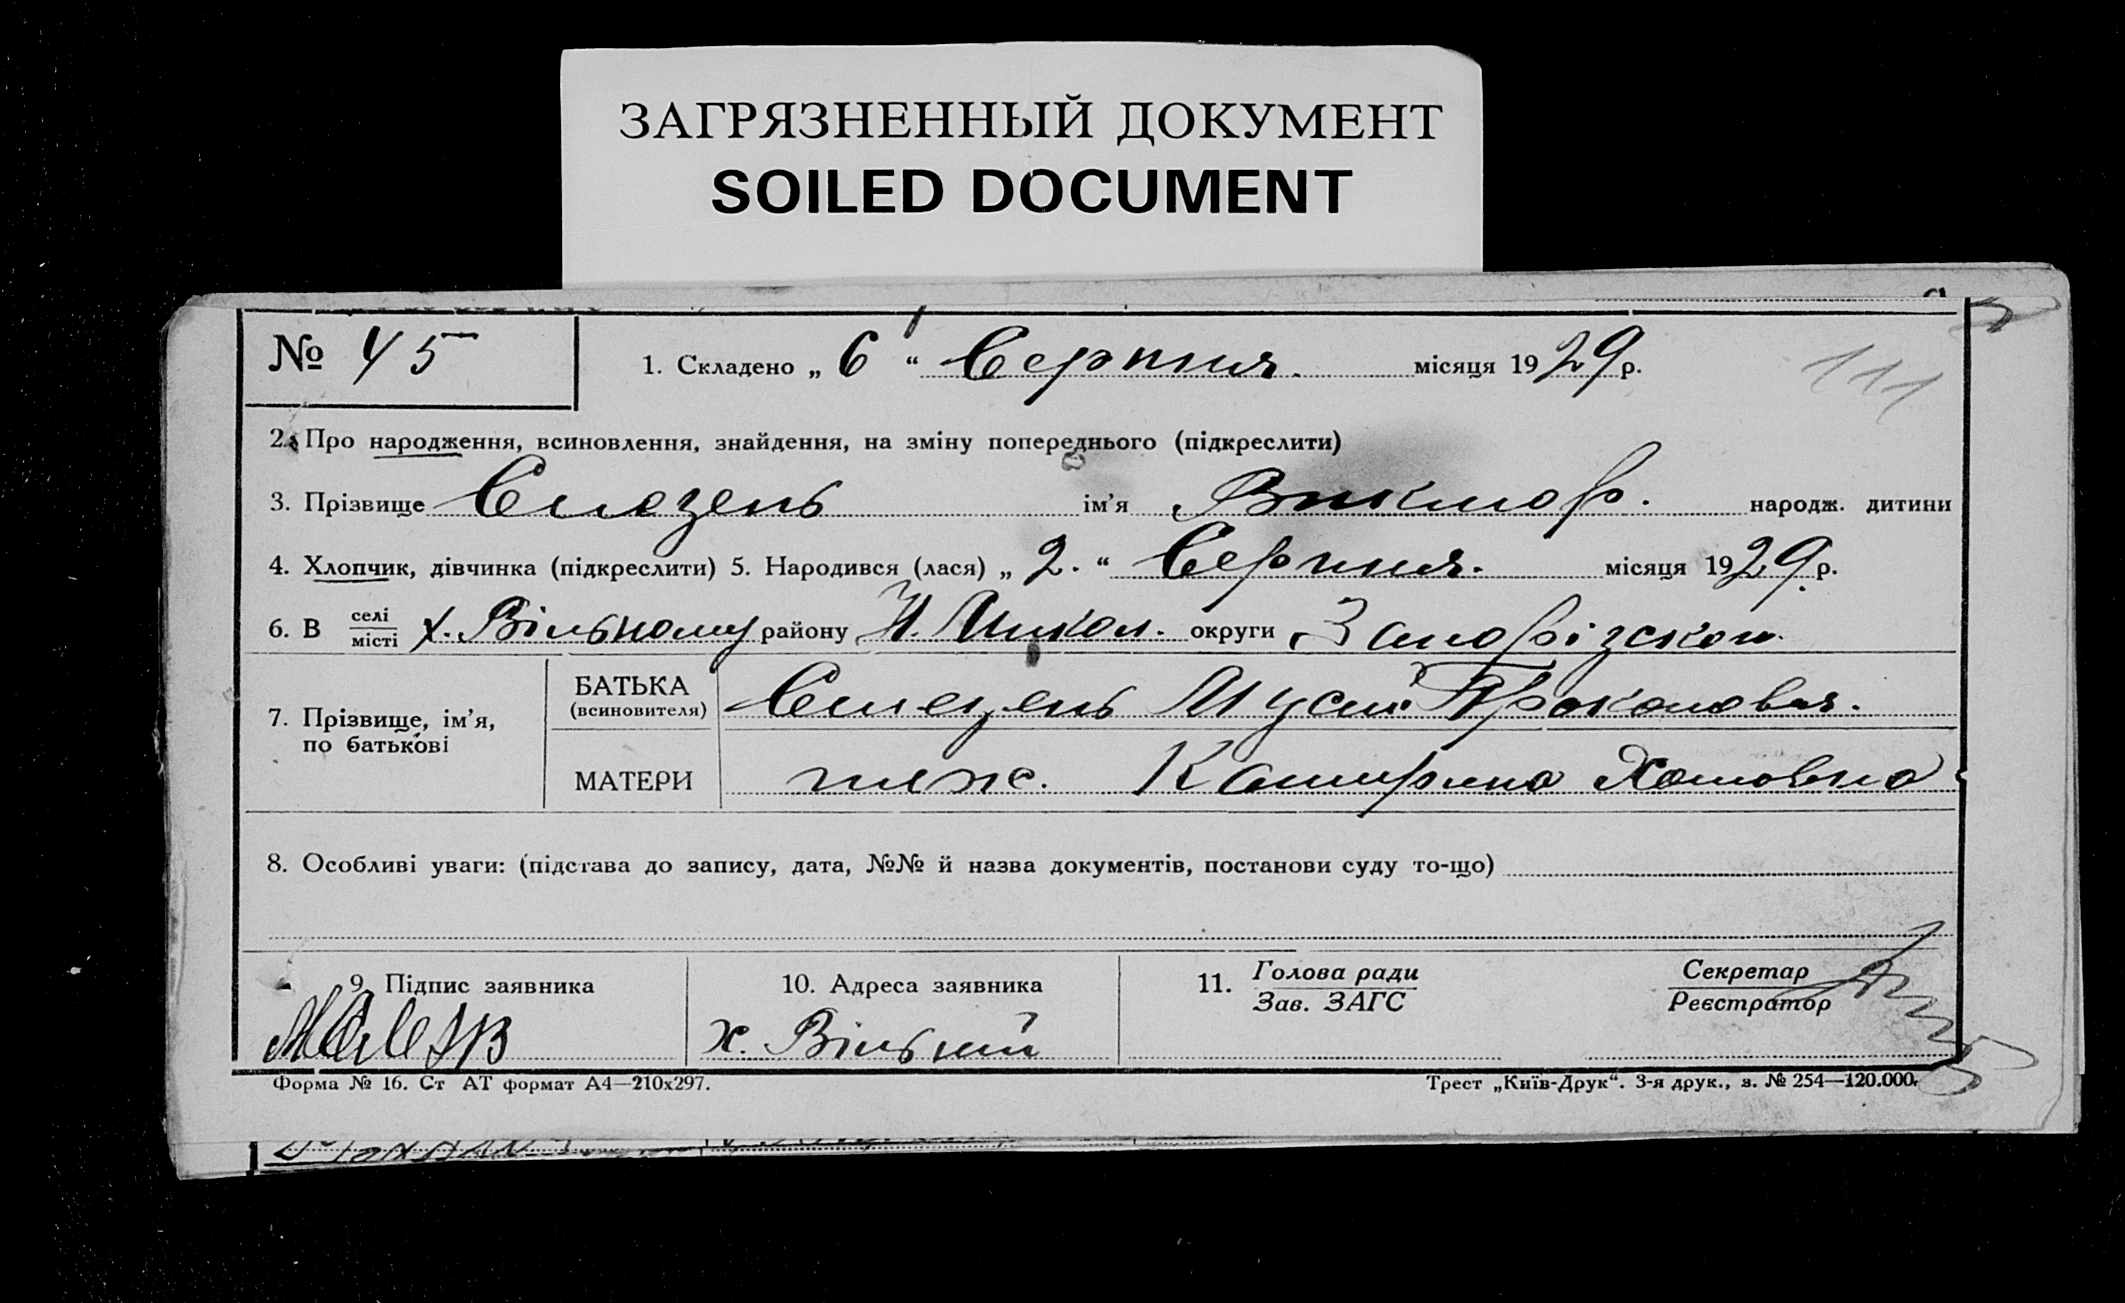 ЗАГРЯЗНЕННЫЙ ДОКУМЕНТ
SOILED DOCUMENT
№ 45
1. Складено „ 6 “ Серпния. місяця 1929 р.
111
2. Про народження, всиновлення, знайдення, на зміну попереднього (підкреслити)
3. Прізвище Слезень ім’я Виктор. народж. дитини
4. Хлопчик, дівчинка (підкреслити) 5. Народився (лася) „ 2. “ Серпния. місяця 1929 р.
6. В селі
місті х. Вільному району Н. Микол. округи Запорізскои
7. Прізвище, ім’я,
по батькові
БАТЬКА
(всиновителя) Слезень Мусій Прокопович.
МАТЕРИ Катирина
8. Особливі уваги: (підстава до запису, дата, №№ й назва документів, постанови суду то-що)
9. Підпис заявника
10. Адреса заявника
х. Вільний
11. Голова ради
Зав. ЗАГС
Секретар
Реєстратор
Форма № 16. Ст АТ формат А4—210х297.
Трест „Київ-Друк“. 3-я друк., з. № 254—120.000.